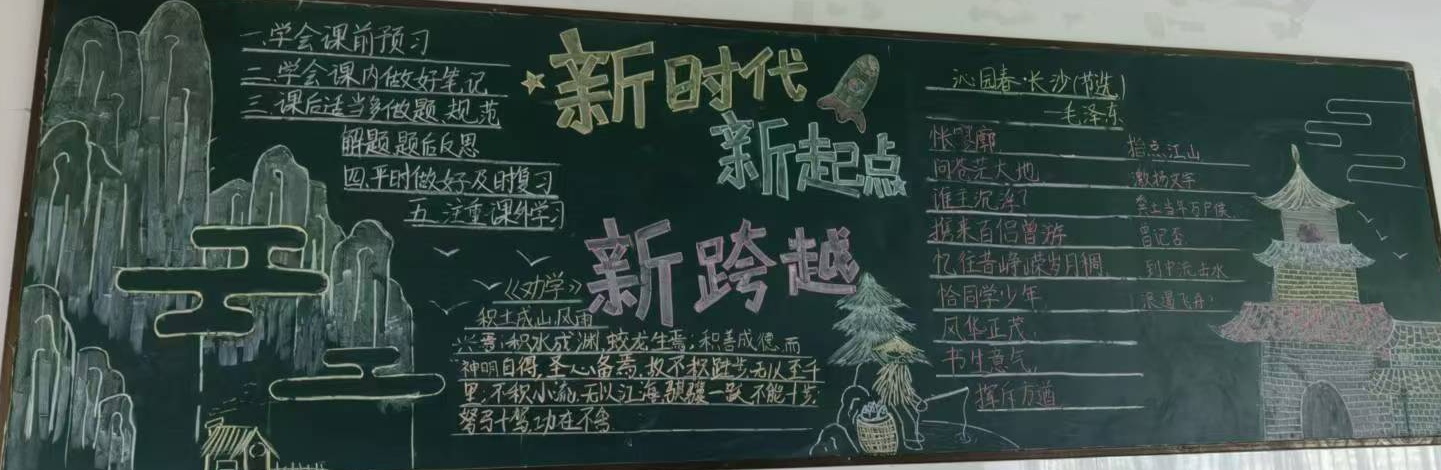 一.学会课前预习
二.学会课内做好笔记
三.课后适当多做题.规范
解题.题后反思
四.平时做好及时复习
五.注重课外学习
新时代
新起点
新跨越
《劝学》
积土成山风雨
兴焉;积水成渊,蛟龙生焉;积善成德,而
神明自得,圣心备焉.故不积跬步,无以至千
里;不积小流,无以江海.骐骥一跃,不能十步,
驽马十驾,功在不舍
沁园春·长沙(节选)
毛泽东
怅寥廓
问苍茫大地
谁主沉浮?
携来百侣曾游
忆往昔峥嵘岁月稠
恰同学少年
风华正茂,
书生意气
挥斥方遒
指点江山
激扬文字
粪土当年万户侯.
曾记否
到中流击水
浪遏飞舟?